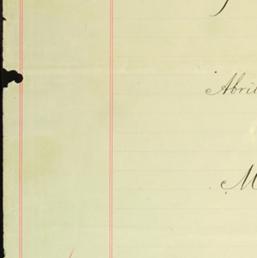 Abril
M